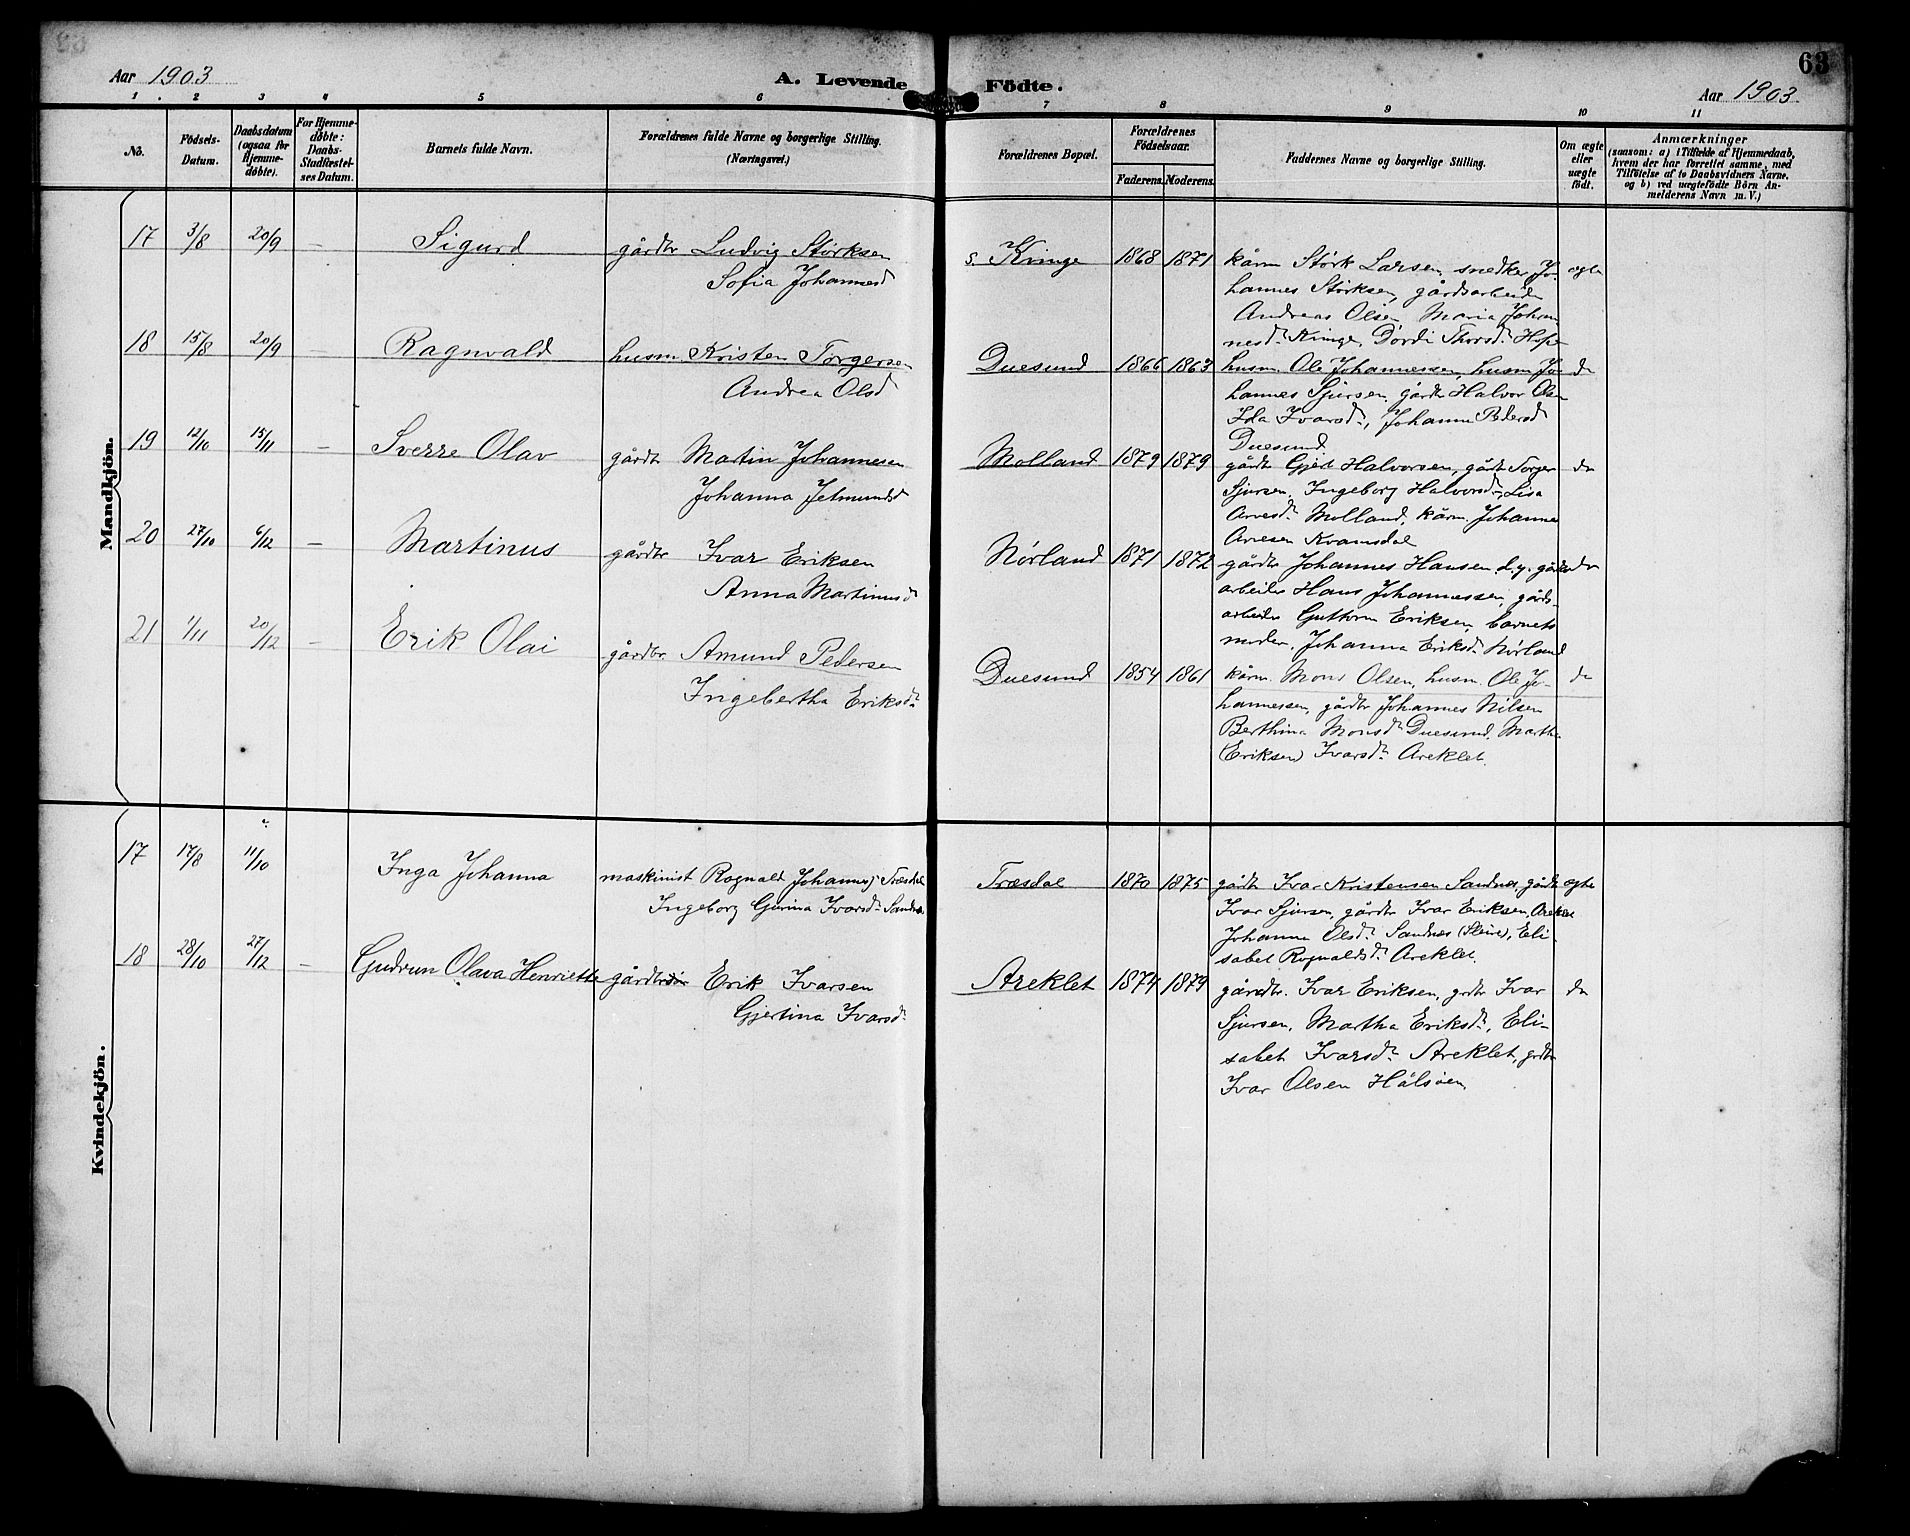 Aar 1903
A. Levende Födte.
63
Aar 1903.
1. 2 3 4 5 6 7 8 9 10 11
No.
Födsels-Datum.
Daabsdatum (ogsaa for Hjemme-døbte).
For Hjemme-døbte: Daabs-Stadfæstel-ses Datum.
Barnets fulde Navn.
Forældrenes fulde Navne og borgerlige Stilling. (Næringsvei.)
Forældrenes Bopæl.
Forældrenes Födselsaar.
Faderens. Moderens.
Faddernes Navne og borgerlige Stilling.
Om ægte eller uægte født.
Anmærkninger
(saasom: a) i Tilfælde af Hjemmedaab, hvem der har forrettet samme, med Tilføielse af to Daabsvidners Navne, og b) ved uægtefödte Börn An-melderens Navn m. V.)
Mandkjön.
17 3/8 20/9 – Sigurd gårdbr Ludvig Størksen
Sofia Johannesd
s. Kvinge 1868 1871 kårm Størk Larsen, snedker Jo- ægte
hannes Størksen, gårdsarbeider
Andreas Olsen Maria Johan
nesd. Kvinge, Dordi Thorsd. Hope
18 15/8 20/9 – Ragnvald husm. Kristen Torgersen
Andrea Olsd
Duesund 1866 1863 husm. Ole Johannessen, husm Jo- do
hannes Sjursen, gårdbr Halvor Olsen
Ida Ivarsd., Johanna Pedersd
Duesund
19 12/10 15/11 – Sverre Olav gårdbr Martin Johannesen
Johanna Jetmundsd
Molland 1879 1879 gårdbr Gjert Halvorsen, gårdbr Torger do
Sjursen, Ingeborg Halvorsd., Lisa
Arnesd. Molland, kårm. Johannes
Arnesen Kvamsdal
20 27/10 6/12 – Martinus gårdbr Ivar Eriksen
Anna Martinusd
Nørland 1871 1872 gårdbr Johannes Hansen d.y. gårds- do
arbeider Hans Johannessen, gårds-
arbeider Guttorm Eriksen, barnets
moder, Johanna Eriksd. Nørland
21 1/11 20/12 – Erik Olai gårdbr. Amund Pedersen
Ingebertha Eriksd.
Duesund 1854 1861 kårm. Mons Olsen, husm. Ole Jo- do
hannessen, gårdbr Johannes Nilsen
Berthina Monsd. Duesund, Martha
(Eriksen) Ivarsd. Areklet.
Kvindekjön.
17 17/8 11/10 Inga Johanna maskinist Rognald Johannes. Træsdal
Ingeborg Gurina Ivarsd. Sandnes
Træsdal 1870 1875 gårdbr Ivar Kristensen Sandnes, gårdbr ægte
Ivar Sjursen, gårdbr Ivar Eriksen, Areklet
Johanna Olsd. Sandnes (Sleire), Eli-
sabet Rognaldsd. Areklet.
18 28/10 27/12 – Gudrun Olava Henriette gårdbr Erik Ivarsen
Gjertina Ivarsd.
Areklet 1874 1879 gårdbr. Ivar Eriksen, grdbr Ivar do
Sjursen, Martha Eriksd., Eli-
sabet Ivarsd. Areklet, grdbr
Ivar Olsen Hålsøen